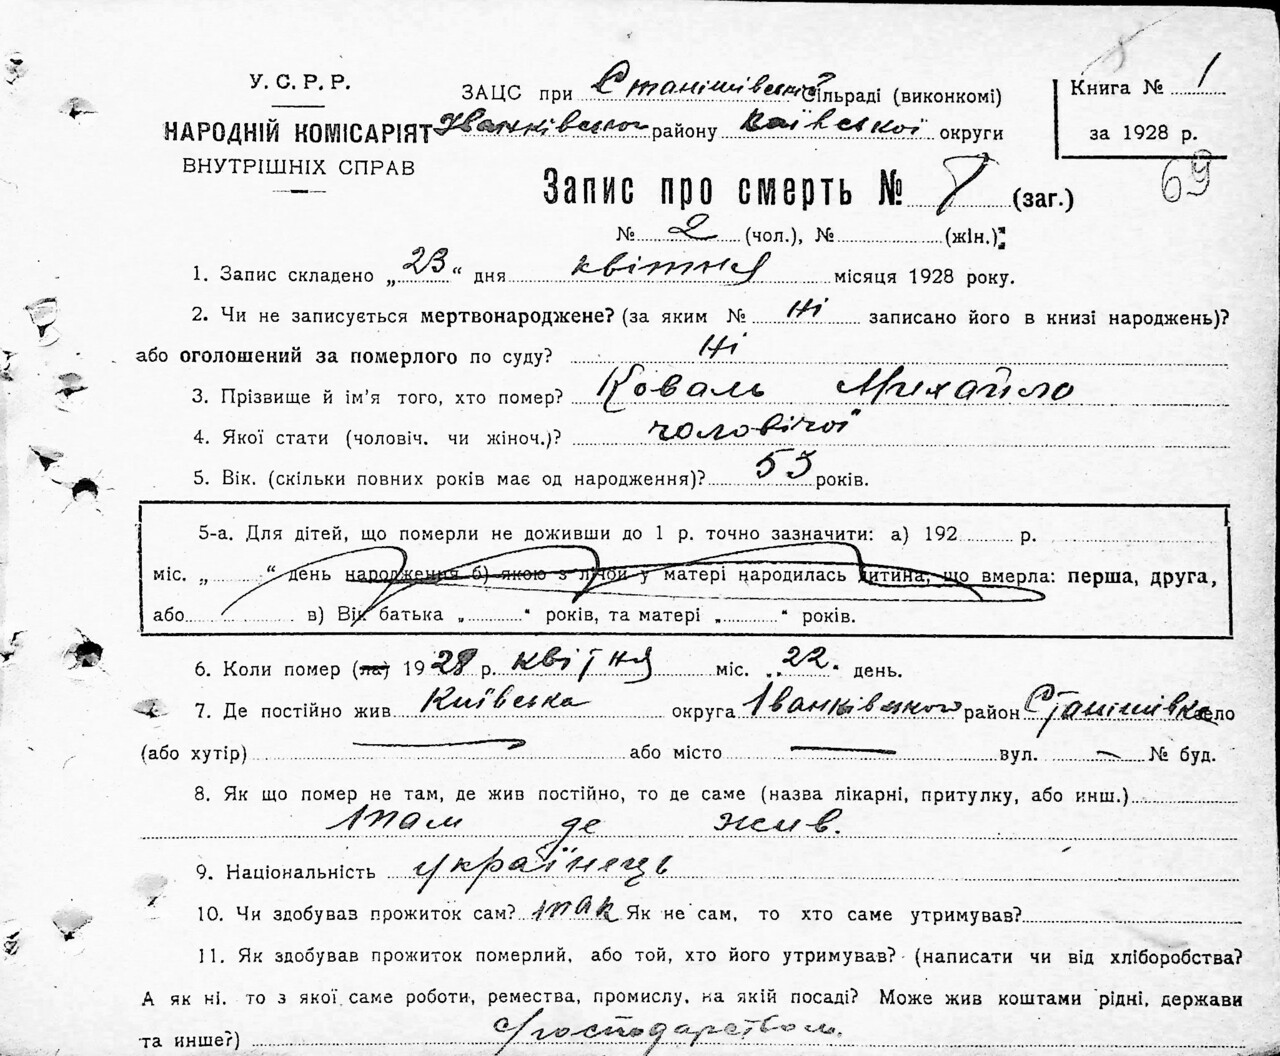 У. С. Р. Р.
НАРОДНІЙ КОМІСАРІЯТ
ВНУТРІШНІХ СПРАВ
ЗАЦС при Станішівській Сільраді (виконкомі)
Іванківського району Київської округи
Книга № 1
за 1928 р.
69
Запис про смерть № 7 (заг.)
№ 2 (чол.), № (жін.)
1. Запис складено „23“ дня квітня місяця 1928 року.
2. Чи не записується мертвонароджене? (за яким № Ні записано його в книзі народжень)?
або оголошений за померлого по суду? Ні
3. Прізвище й ім'я того, хто помер? Коваль Михайло
4. Якої стати (чоловіч. чи жіноч.)? чоловічої
5. Вік. (скільки повних років має од народження)? 53 років.
5-а. Для дітей, що померли не доживши до 1 р. точно зазначити: а) 192 р.
міс. „ “ день народження б) якою з лічби у матері народилась дитина, що вмерла: перша, друга,
або в) Вік батька „ “ років, та матері „ “ років.
6. Коли помер (ла) 1928 р. квітня міс. „22“ день.
7. Де постійно жив Київська округа Іванківського район Станішівка село
(або хутір) — або місто — вул. — № буд.
8. Як що помер не там, де жив постійно, то де саме (назва лікарні, притулку, або инш.)
там де жив.
9. Національність українець
10. Чи здобував прожиток сам? так Як не сам, то хто саме утримував?
11. Як здобував прожиток померлий, або той, хто його утримував? (написати чи від хліборобства?
А як ні, то з якої саме роботи, ремества, промислу, на якій посаді? Може жив коштами рідні, держави
та инше?) Господарством.